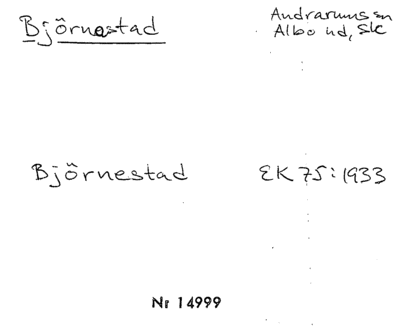 Björnestad
Andrarums sn
Albo hd, Sk
Björnestad EK 75:1933
Nr 14999